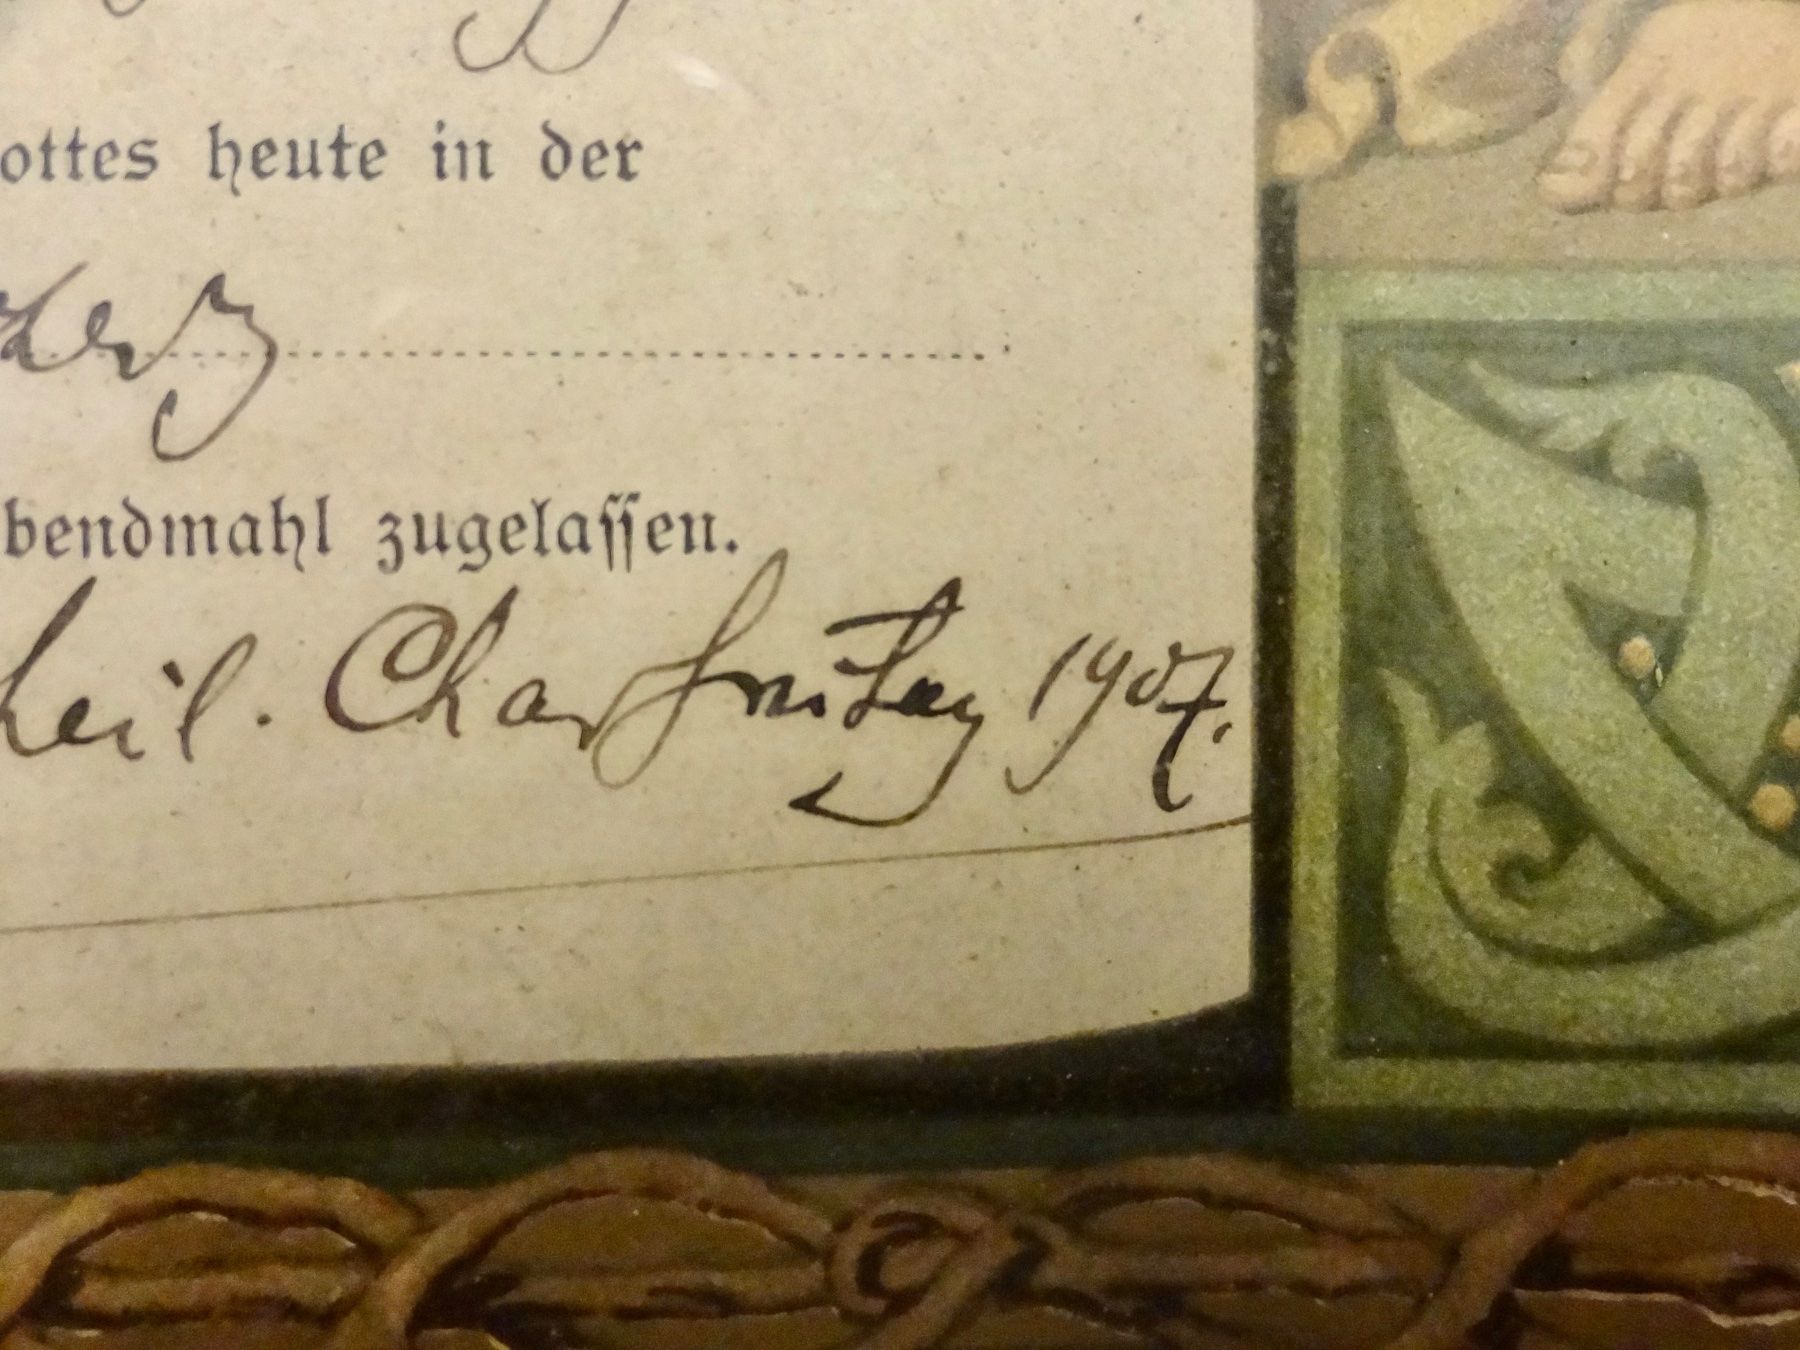 ottes heute in der
bendmahl zugelassen.
heil. Charfreitag 1907.